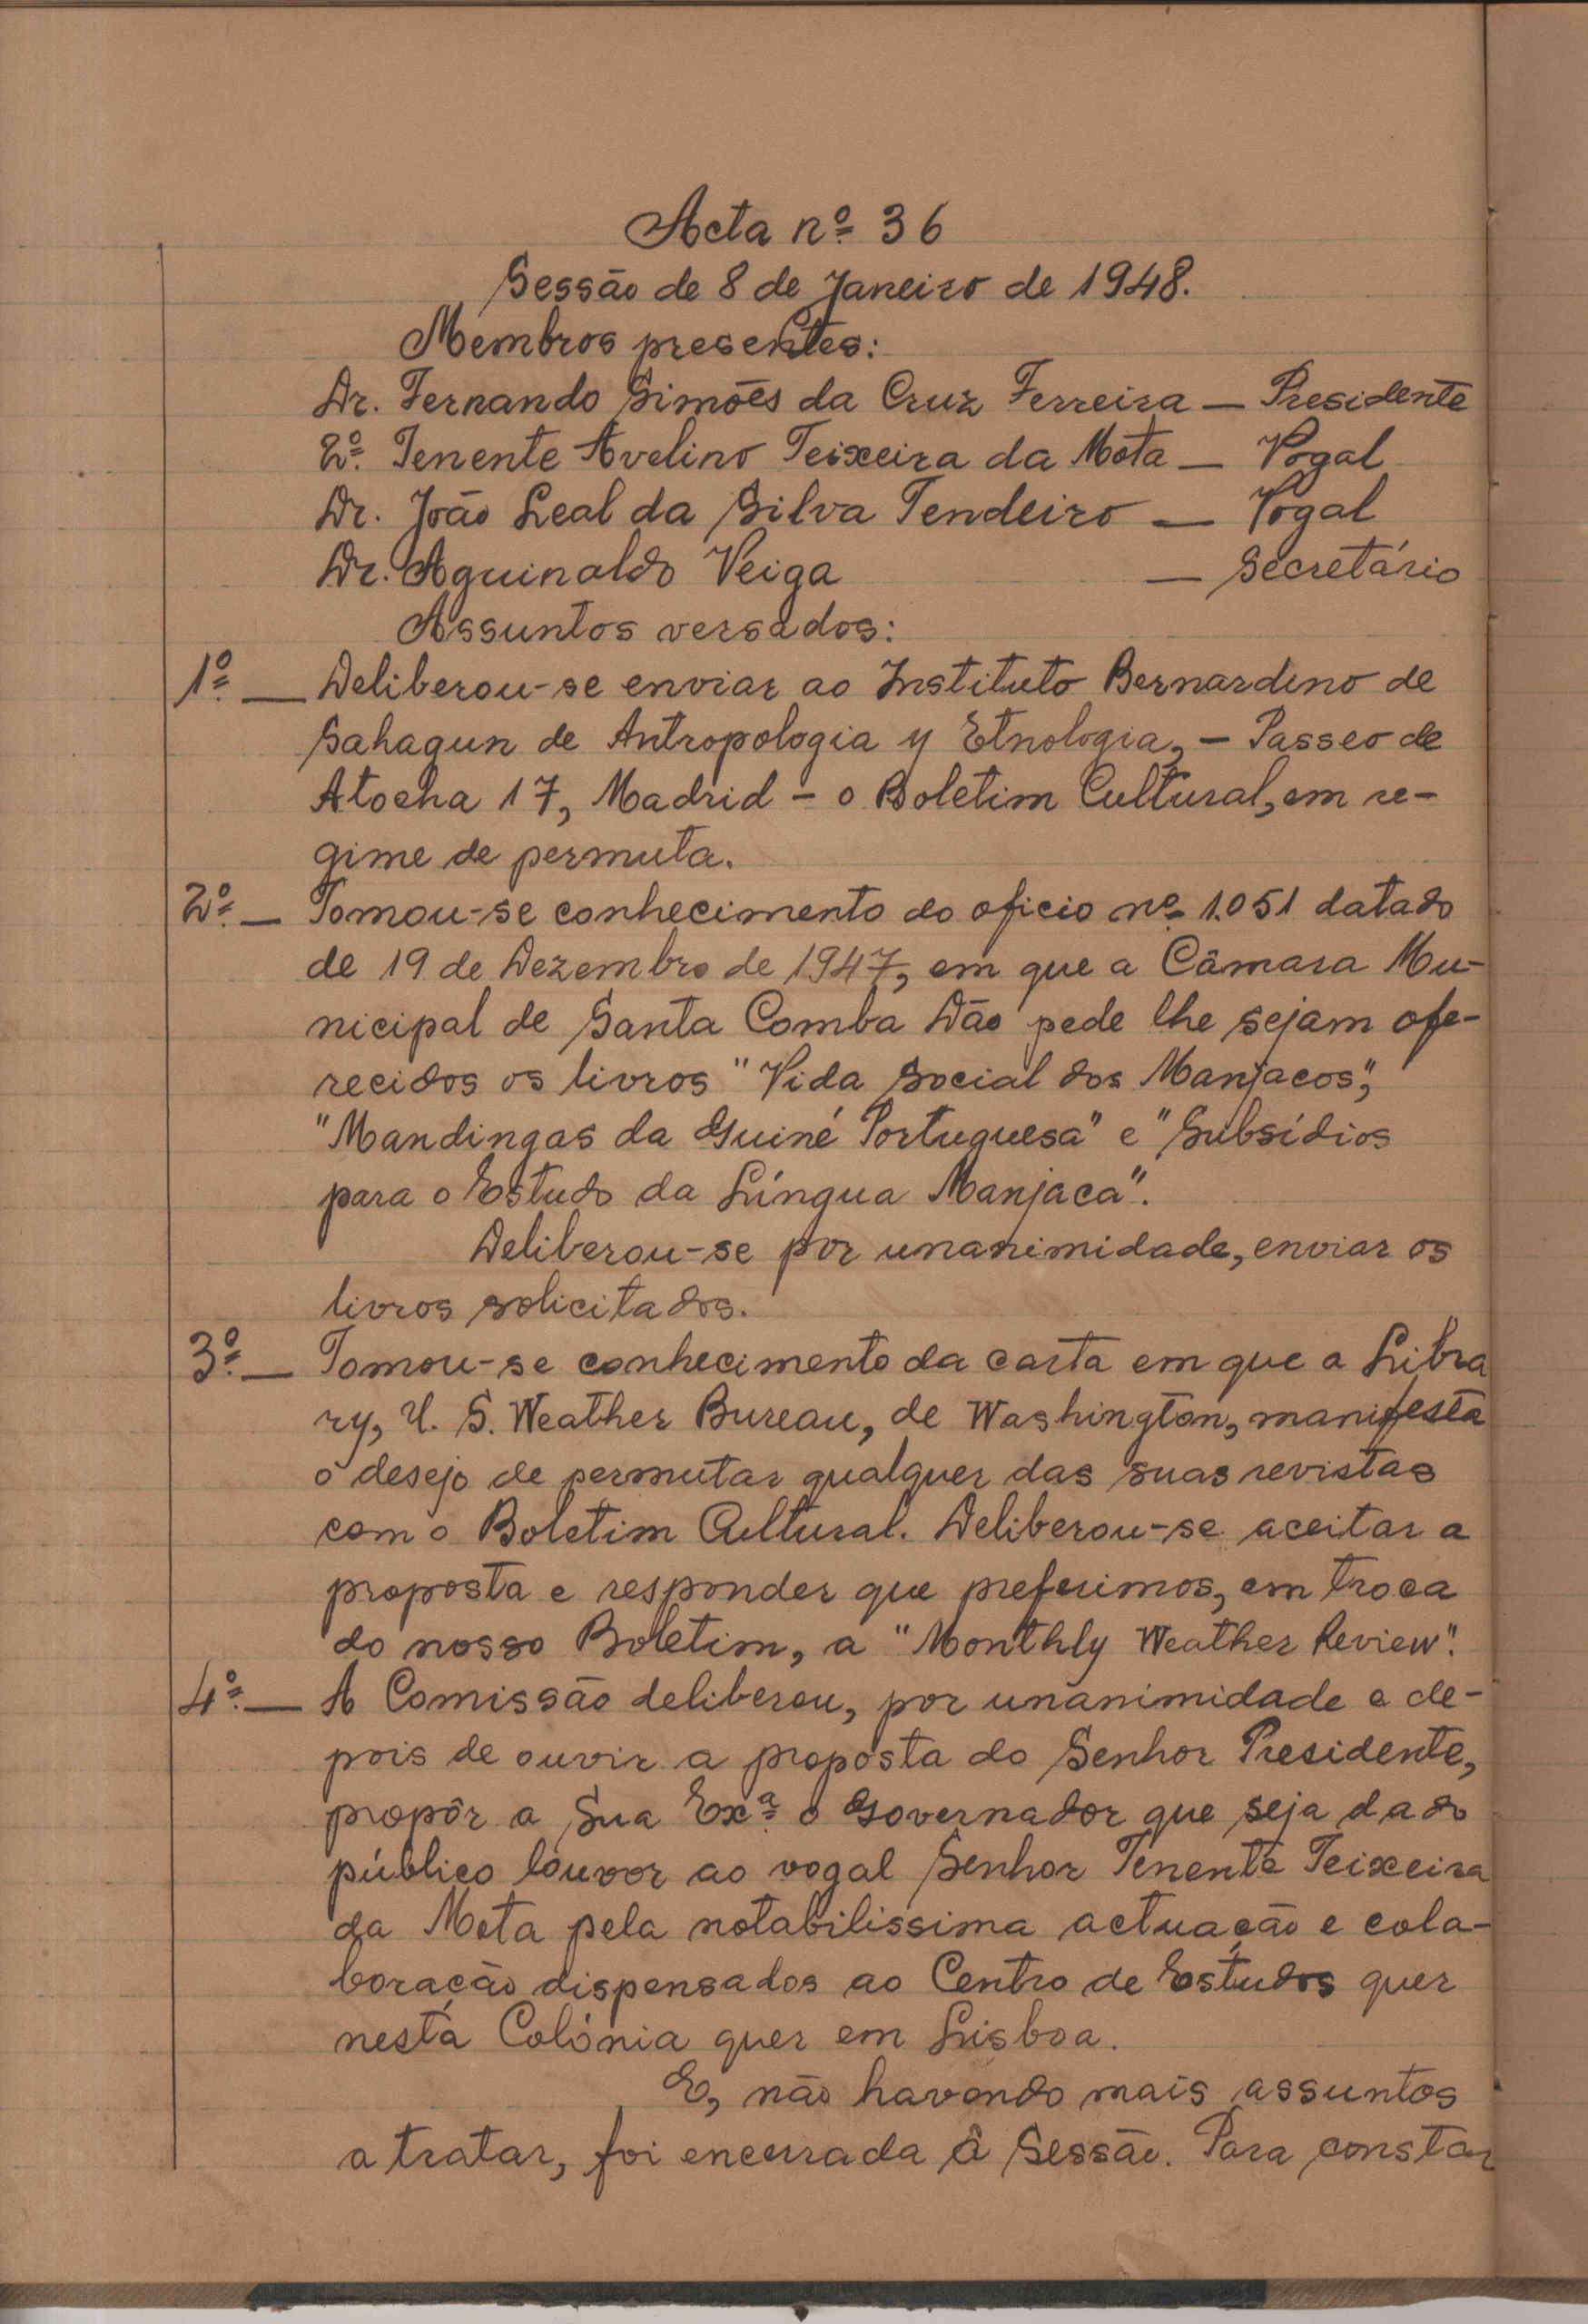 Acta nº 36
Sessão de 8 de Janeiro de 1948.
Membros presentes:
Dr. Fernando Simões da Cruz Ferreira — Presidente
2º. Tenente Avelino Teixeira da Mota — Vogal
Dr. João Leal da Silva Tendeiro — Vogal
Dr. Aguinaldo Veiga — Secretário
Assuntos versados:
1º. — Deliberou-se enviar ao Instituto Bernardino de
Sahagun de Antropologia y Etnologia, - Passeo de
Atocha 17, Madrid - o Boletim Cultural, em re-
gime de permuta.
2º. — Tomou-se conhecimento do oficio nº 1.051 datado
de 19 de Dezembro de 1947, em que a Câmara Mu-
nicipal de Santa Comba Dão pede lhe sejam ofe-
recidos os livros "Vida Social dos Manjacos",
"Mandingas da Guiné Portuguesa" e "Subsídios
para o Estudo da Língua Manjaca".
Deliberou-se por unanimidade, enviar os
livros solicitados.
3º. — Tomou-se conhecimento da carta em que a Libra
ry, U. S. Weather Bureau, de Washington, manifesta
o desejo de permutar qualquer das suas revistas
com o Boletim Cultural. Deliberou-se aceitar a
proposta e responder que preferimos, em troca
do nosso Boletim, a "Monthly Weather Review".
4º. — A Comissão deliberou, por unanimidade e de-
pois de ouvir a proposta do Senhor Presidente,
propôr a Sua Exª o Governador que seja dado
público louvor ao vogal Senhor Tenente Teixeira
da Mota pela notabilissima actuação e cola-
boração dispensados ao Centro de Estudos quer
nesta Colónia quer em Lisboa.
E, não havendo mais assuntos
a tratar, foi encerrada a Sessão. Para constar